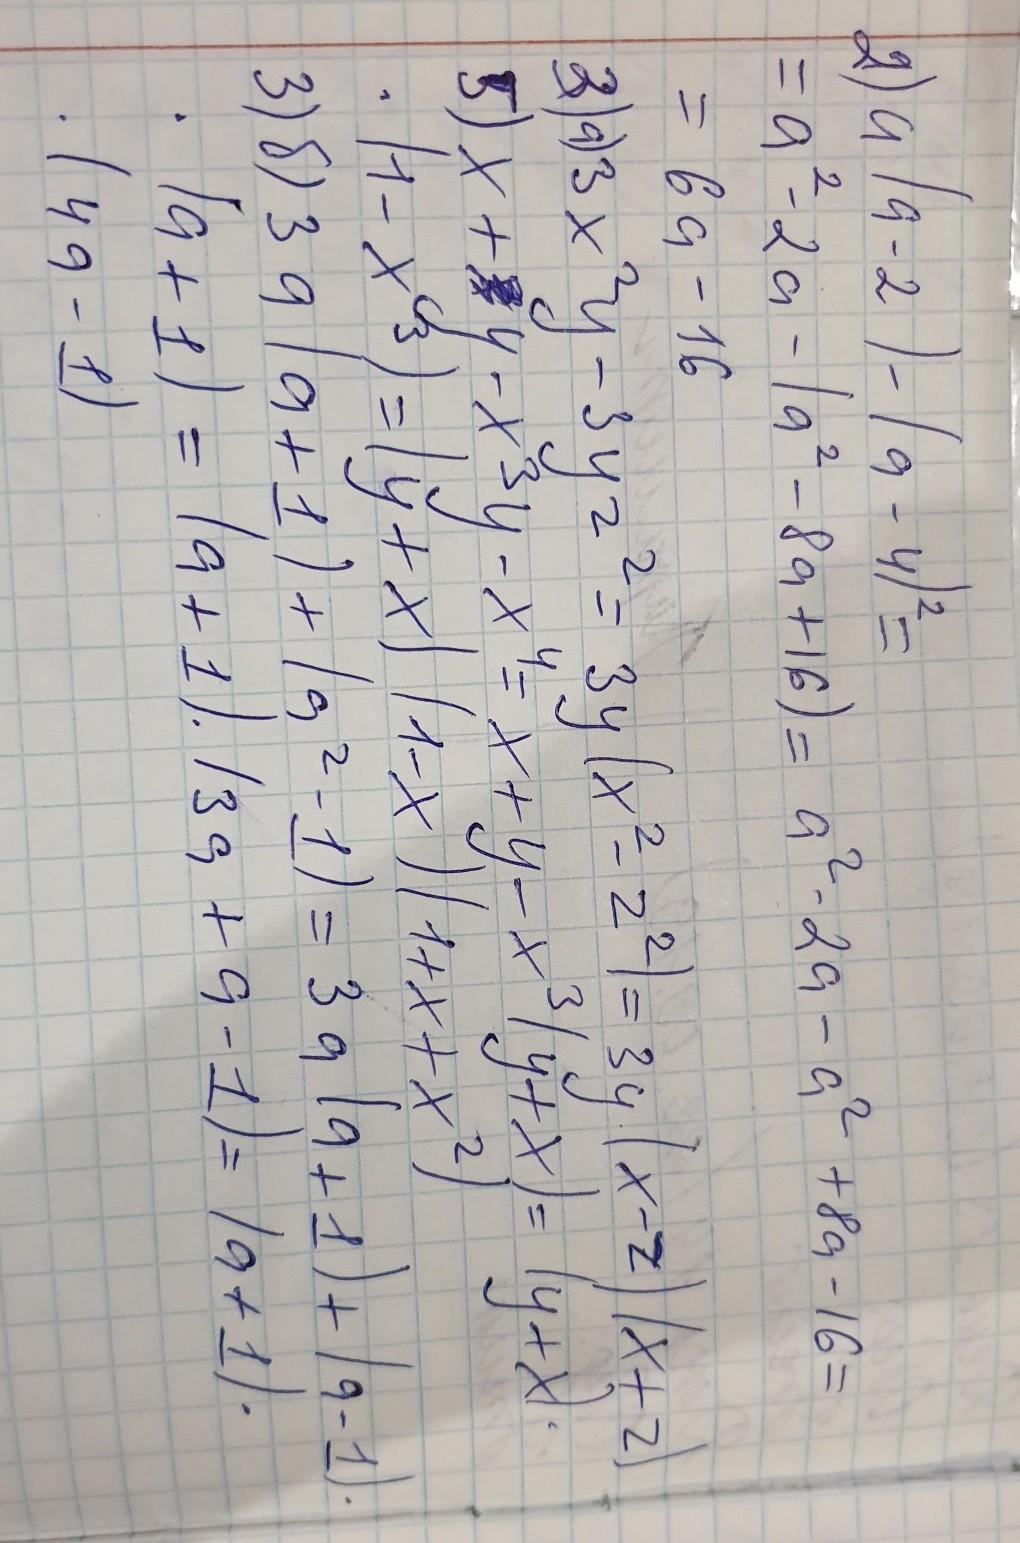 2) a(a-2)-(a-4)²=
=a²-2a-(a²-8a+16)=a²-2a-a²+8a-16=
=6a-16
3)а)3x²y-3yz²=3y(x²-z²)=3y.(x-z)(x+z)
5)x+y-x³y-x⁴=x+y-x³(y+x)=(y+x).
·(1-x³)=(y+x)(1-x)(1+x+x²)
3)б)3a(a+1)+(a²-1)=3a(a+1)+(a-1).
·(a+1)=(a+1).(3a+a-1)=(a+1).
·(4a-1)